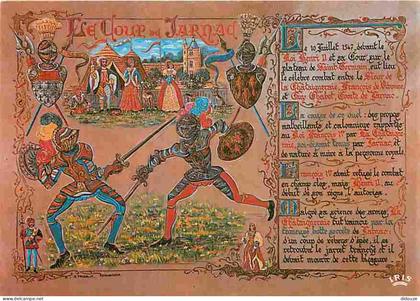 Le Coup de Jarnac
Le 10 Juillet 1547, devant le
Roi Henri II et sa Cour, sur le
plateau de Saint Germain eut lieu
le célèbre combat entre le Sieur de
la Châtaigneraie, François de Vivonne
et Guy Chabot, Comte de Jarnac.
La cause de ce duel : des propos
malveillants et calomnieux rapportés
au Roi François 1er par La Châtaigne-
raie, pourtant tenus par Jarnac, et
de nature à nuire à la personne royale.
François 1er avait refusé le combat
en champ clos, mais Henri II, au
début de son règne, l'autorisa.
Malgré sa science des armes La
Châtaigneraie fut vaincu par la
fameuse botte secrète de Jarnac :
d'un coup de revers d'épée, il se
retrouva le jarret tranché et il
devait mourir de cette blessure.
IRIS